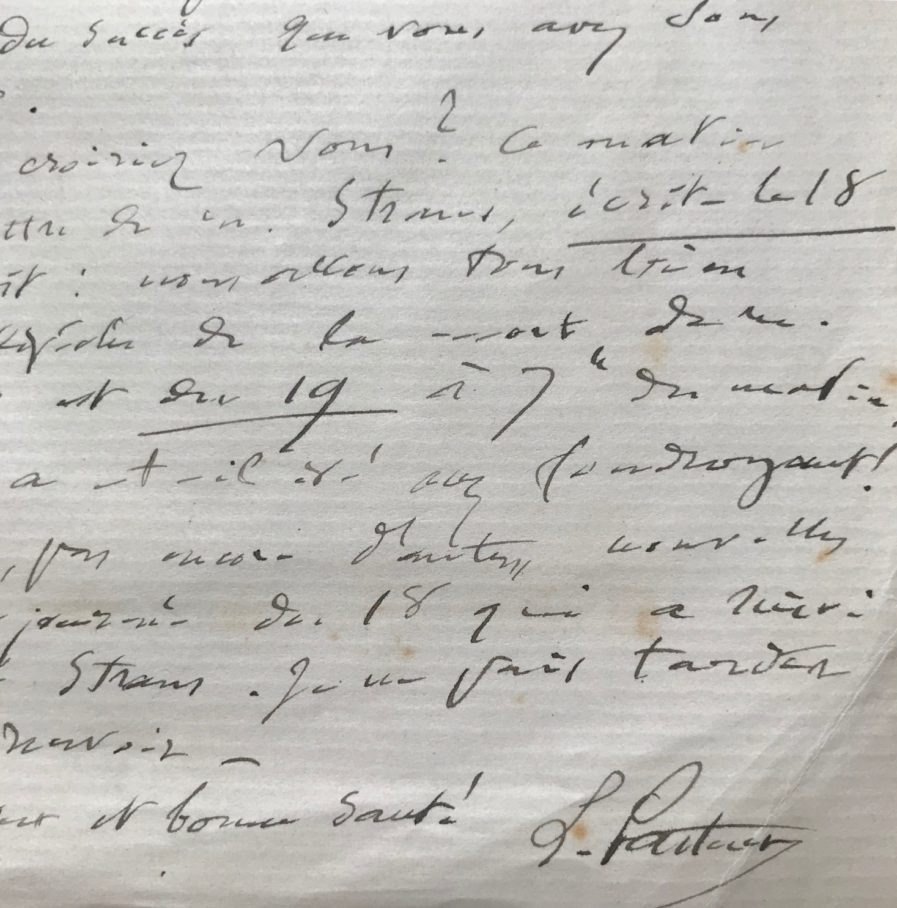 du succès que vous avez dans
croiriez vous? Ce matin
ttre de m. Straus, écrite le 18
it : nous allons tous bien
de la mort de m.
est du 19 à 7h du matin
a-t-il été assez foudroyant!
, pas encore d'autres nouvelles
journée du 18 qui a suivi
Straus. Je ne puis tarder
recevoir _
et bonne santé
L. Pasteur